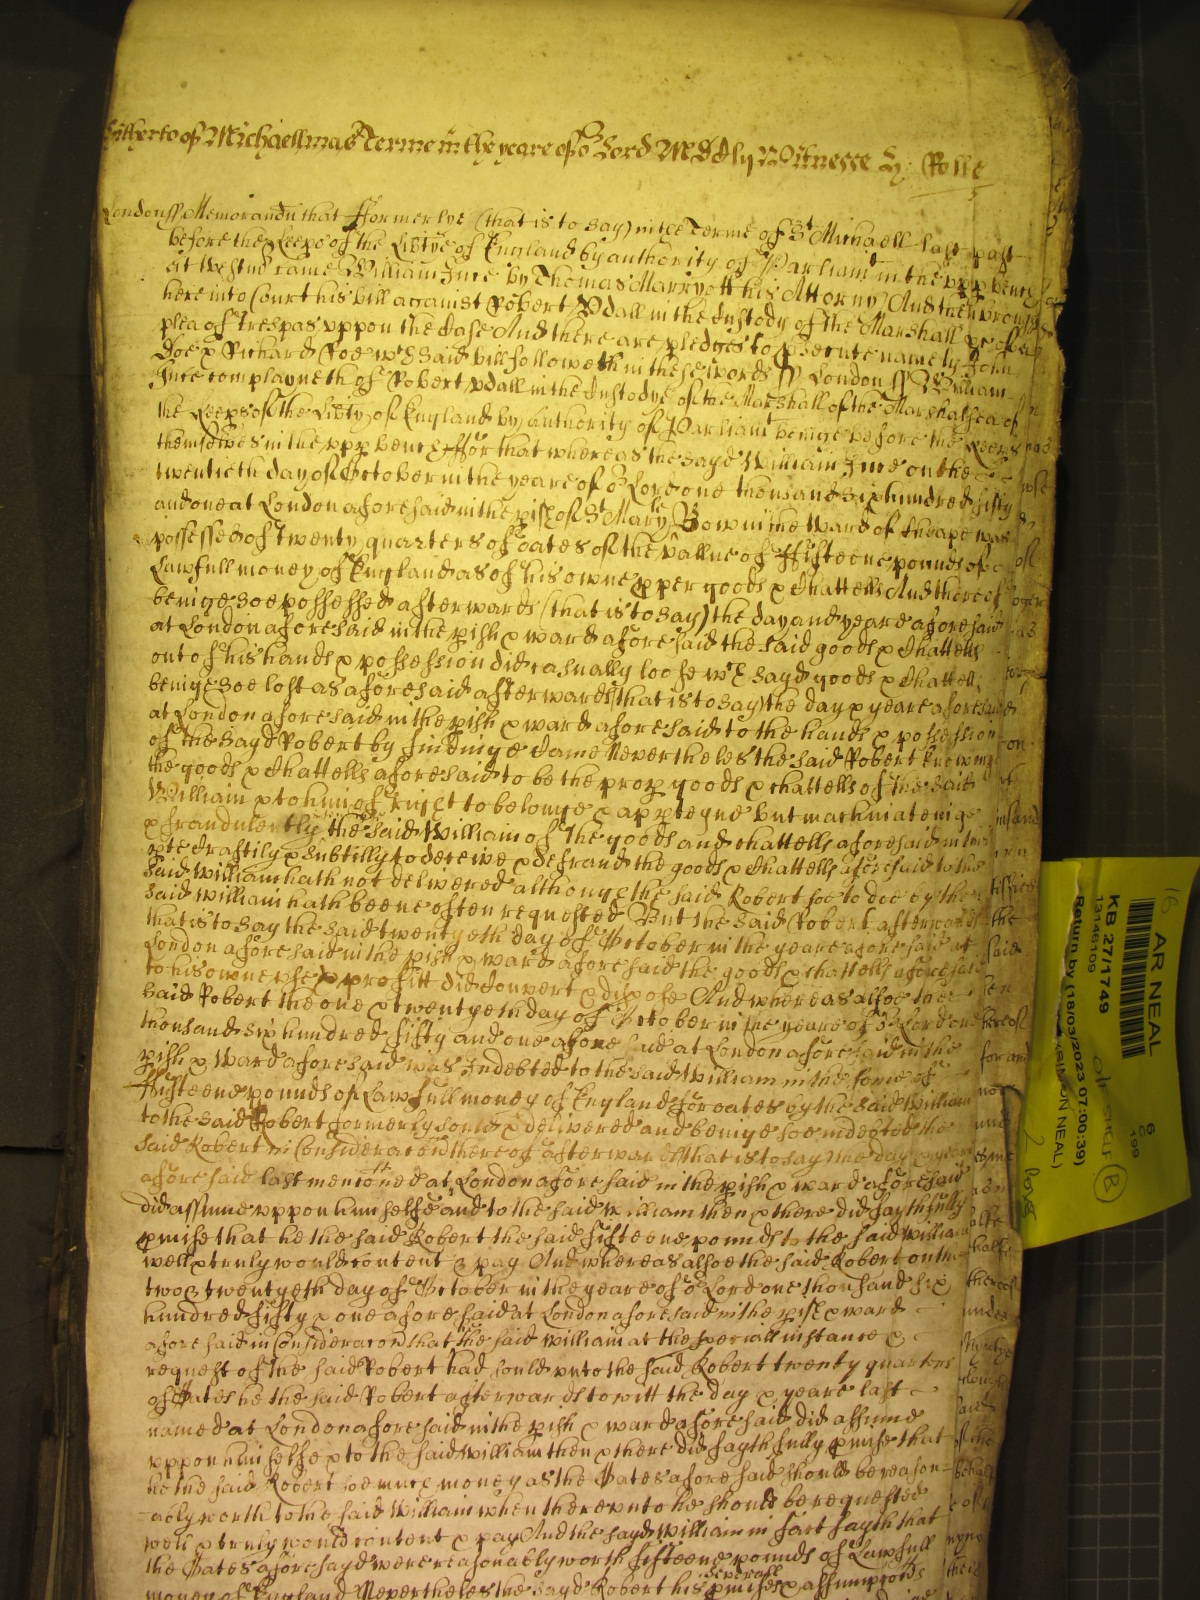 Hitherto of Michaellmas Terme in the yeare of or Lord MDCly Witnesse H: Rolle
London ss Memorandu that Formerlye (that is to say) in the Terme of St Michaell last past
before the Keeps of the Libtye of England by authority of Parliamt in the upp bench
at Westmr came William June by Thomas Marryott his Attorny And then brought
here into Court his bill against Robert Udall in the Custody of the Marshall &c of a
plea of trespas uppon the Case And there are pledges to psecute namely John
Doe & Richard Roe wch said bill followeth in these words ss London ss William
June complayneth of Robert Udall in the Custodye of the Marshall of the Marshalsea of
the Keeps of the Libty of England by authority of Parliamt beinge before the Keeps
themselves in the upp bench For that whereas the sayd William June on the
twentieth day of October in the yeare of or Lord one thousand six hundred fifty
and one at London aforesaid in the pish of St Mary le Bow in the Ward of Cheape was
possessed of twenty quarters of oates of the vallue of Fifteene pounds of
Lawfull money of England as of his owne pper goods & Chattells And thereof
beinge soe possessed afterwards (that is to say) the day and yeare aforesaid
at London aforesaid in the pish & ward aforesaid the said goods & Chattells
out of his hands & possession did casually loose wch sayd goods & Chattells
beinge soe lost as aforesaid afterwards (that is to say) the day & yeare aforesaid
at London aforesaid in the pish & ward aforesaid to the hands & possession
of the sayd Robert by findinge Came Neverthelesse the said Robert knowing
the goods & Chattells aforesaid to be the prop goods & chattells of the said
William & to him of right to belonge & apptayne but machinateinge
& fraudulently the said William of the goods and chattells aforesaid in this
pte Craftily & subtilly to deceive & defraud the goods & Chattells aforesaid to the
said William hath not delivered althouge the said Robert soe to doe by the
said William hath beene often requested But the said Robert afterwards
that is to say the said twentyeth day of October in the yeare aforesaid at
London aforesaid in the pish & ward aforesaid the goods & chattells aforesaid
to his owne use & proffitt did Convert & dispose And whereas alsoe the
said Robert the one & twentyeth day of October in the yeare of or Lord one
thousand six hundred fifty and one above said at London aforesaid in the
pish & ward aforesaid was Indebted to the said William in the some of
Fifteene pounds of Lawfull money of England for oates by the said William
to the said Robert formerly sould & delivered and beinge soe indebted the
said Robert in Consideracon thereof afterwards that is to say the day & yeare
afore said last mentioned at London aforesaid in the pish & ward aforesaid
did assume uppon himselfe and to the said William then & there did faythfully
pmise that he the said Robert the said fifteene pounds to the said William
well & truly would content & pay And whereas alsoe the said Robert on the
two & twentyeth day of October in the yeare of or Lord one thousand six
hundred fifty & one aforesaid at London aforesaid in the pish & ward
aforesaid in Consideracon that the said William at the speciall instance &
request of the said Robert had sould unto the said Robert twenty quarters
of Oates he the said Robert afterwards to witt the day & yeare last
named at London aforesaid in the pish & ward aforesaid did assume
uppon himselfe & to the said William then & there did faythfully pmise that
he the said Robert soe much money as the Oates aforesaid should be reason-
ably worth to the said William when thereunto he should be requested
well & truly would content & pay And the sayd William in fact sayth that
the Oates aforesayd were reasonably worth fifteene pounds of Lawfull
money of England Neverthelesse the sayd Robert his severall pmises & assumptions
AR NEAL
KB 27/1749
13146109
Return by (18/03/2023 07:00:39)
(SIMON NEAL)
6
199
B